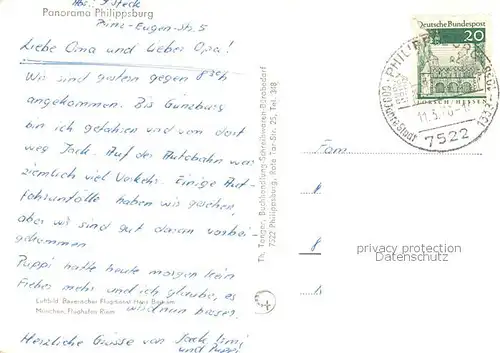 Abs.: J. Steck
Panorama Philippsburg
Prinz-Eugen-Str. 5
Liebe Oma und Lieber Opa!
Wir sind gestern gegen
angekommen. Bis Günzburg
bin ich gefahren und von dort
weg Jack. Auf der Autobahn war
ziemlich viel Verkehr. Einige Auf-
fahrunfälle haben wir gesehen,
aber wir sind gut daran vorbei
gekommen
Puppi hatte heute morgen kein
Fieber mehr und ich glaube, es
wird nun besser.
Luftbild: Bayerischer Flugdienst Hans Bertram
München, Flughafen Riem
Herzliche Grüsse von Jack,
und Puppi
Th. Tonger, Buchhandlung-Schreibwaren-Bürobedarf
7522 Philippsburg, Rote Tor-Str. 25, Tel. 318
Deutsche Bundespost
20
LORSCH/HESSEN
PHILIPPSBURG
7522
Fam.
privacy protection
Datenschutz